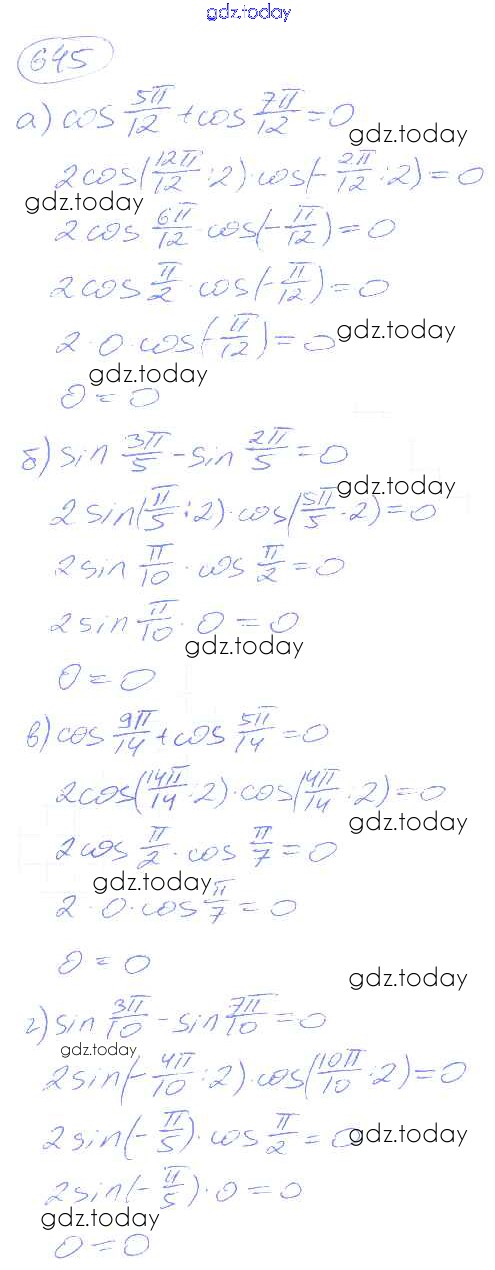 gdz.today
645
а) cos 5π/12 + cos 7π/12 = 0
gdz.today
2cos(12π/12 : 2) · cos(-2π/12 : 2) = 0
gdz.today
2cos 6π/12 · cos(-π/12) = 0
2cos π/2 · cos(-π/12) = 0
2 · 0 · cos(-π/12) = 0
gdz.today
gdz.today
0 = 0
б) sin 3π/5 - sin 2π/5 = 0
gdz.today
2sin(π/5 : 2) · cos(5π/5 : 2) = 0
2sin π/10 · cos π/2 = 0
2sin π/10 · 0 = 0
gdz.today
0 = 0
в) cos 9π/14 + cos 5π/14 = 0
2cos(14π/14 : 2) · cos(4π/14 : 2) = 0
gdz.today
2cos π/2 · cos π/7 = 0
gdz.today
2 · 0 · cos π/7 = 0
0 = 0
gdz.today
г) sin 3π/10 - sin 7π/10 = 0
gdz.today
2sin(-4π/10 : 2) · cos(10π/10 : 2) = 0
2sin(-π/5) · cos π/2 = 0
gdz.today
2sin(-π/5) · 0 = 0
gdz.today
0 = 0